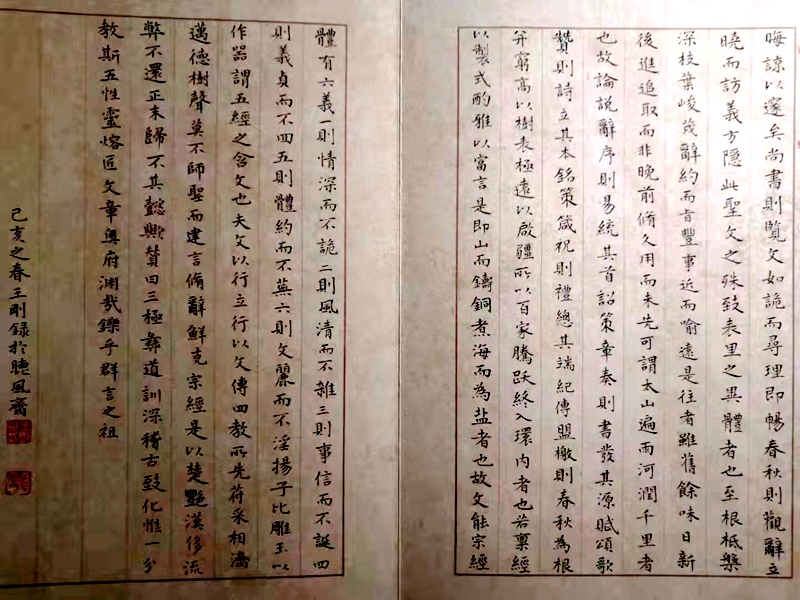 晦諒以邃矣尚書則覽文如詭而尋理即暢春秋則觀辭立
曉而訪義方隱此聖文之殊致表里之異體者也至根柢槃
深枝葉峻茂辭約而旨豐事近而喻遠是往者雖舊餘味日新
後進追取而非晚前脩久用而未先可謂太山遍而河潤千里者
也故論說辭序則易統其首詔策章奏則書發其源賦頌歌
贊則詩立其本銘策箴祝則禮總其端紀傳盟檄則春秋為根
并窮高以樹表極遠以啟疆所以百家騰跃終入環內者也若稟經
以製式酌雅以富言是即山而鑄銅煮海而為盐者也故文能宗經
體有六義一則情深而不詭二則風清而不雜三則事信而不誕四
則義貞而不回五則體約而不蕪六則文麗而不淫揚子比雕玉以
作器謂五經之含文也夫文以行立行以文傳四教所先符采相濟
邁德樹聲莫不師聖而建言脩辭鮮克宗經是以楚艷漢侈流
弊不還正末歸不其懿歟贊曰三極彝道訓深稽古致化惟一分
教斯五性靈熔匠文章奧府淵哉鑠乎群言之祖
己亥之春王剛録於聽風齋